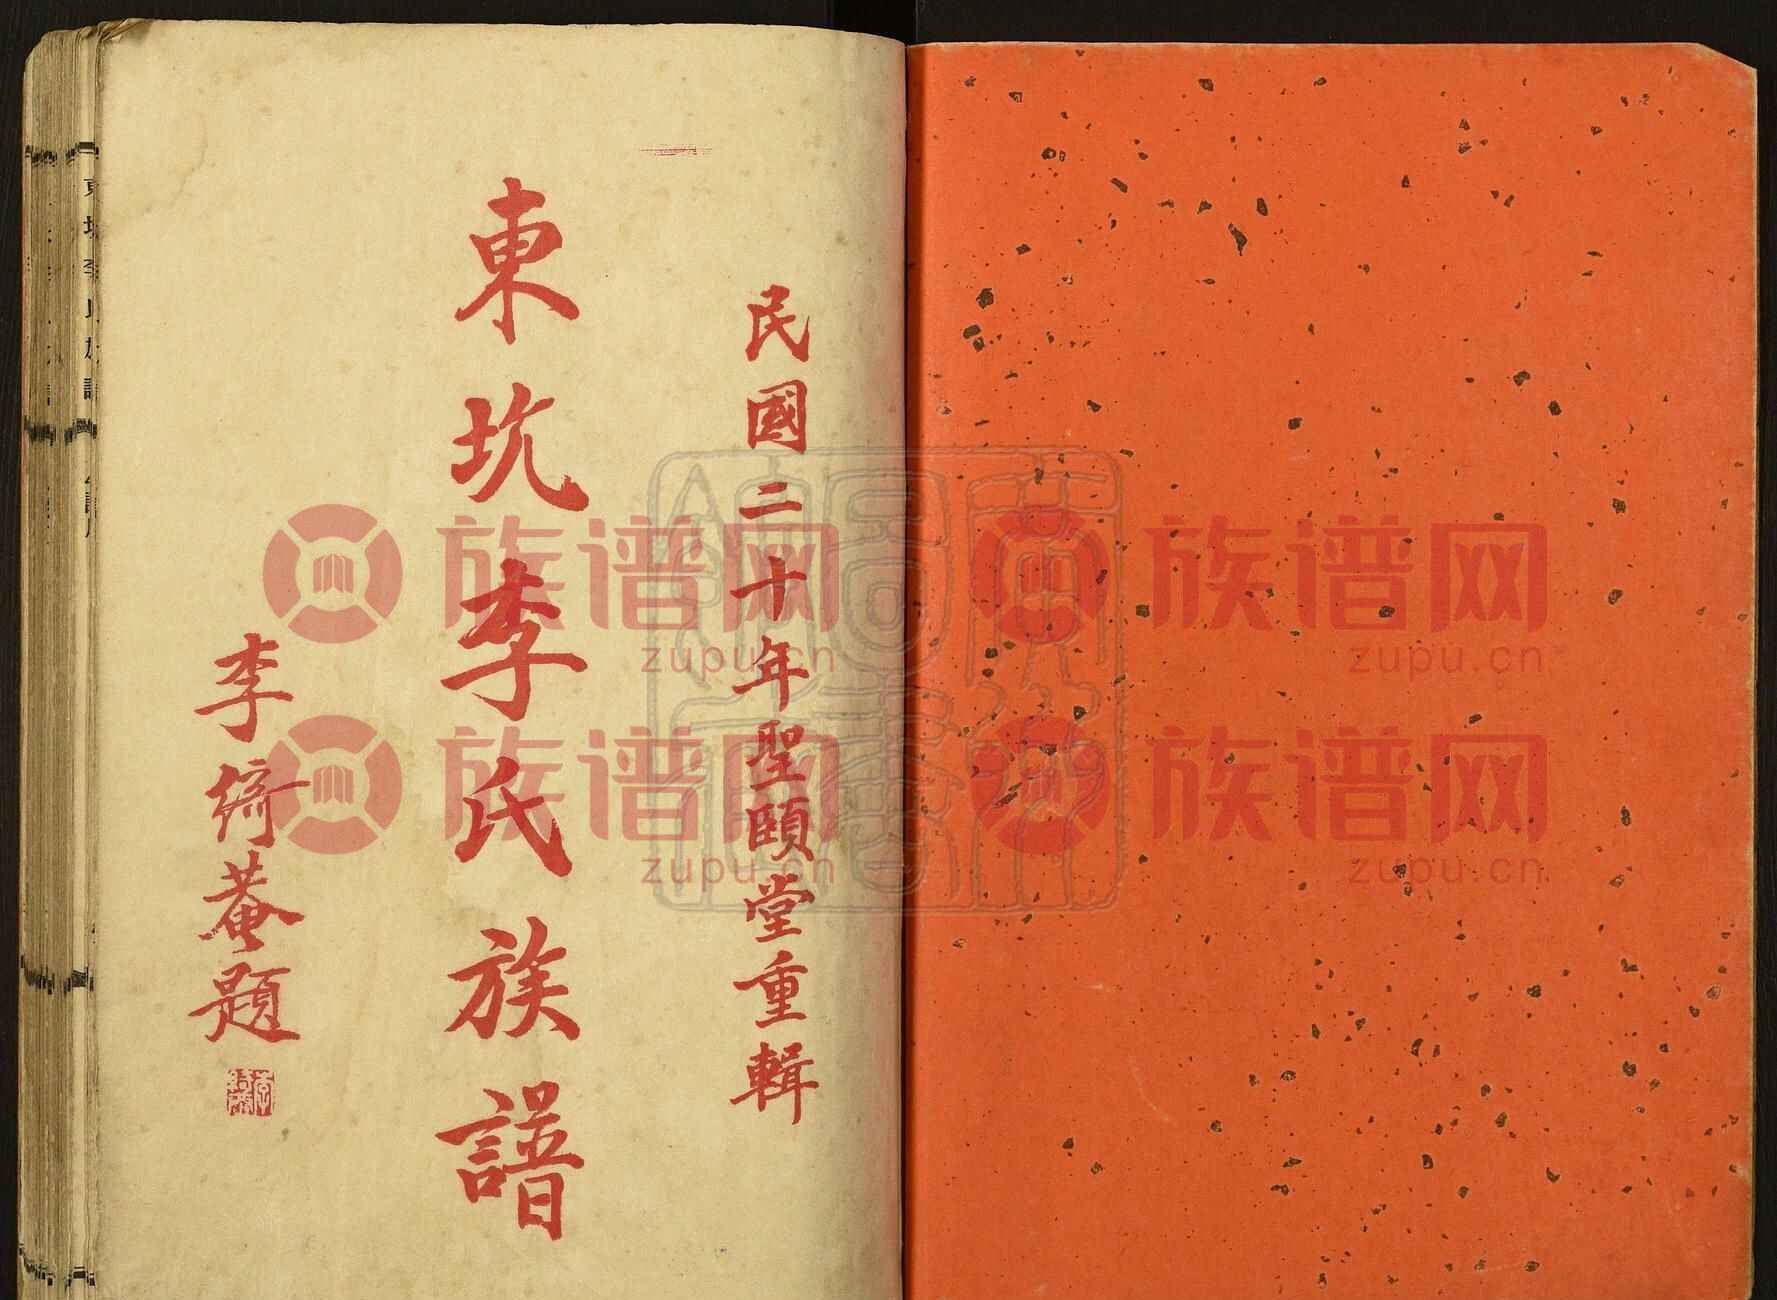 民國二十年聖頤堂重輯
東坑李氏族譜
李綺菴題
族谱网 族谱网
zupu.cn zupu.cn
族谱网 族谱网
zupu.cn zupu.cn